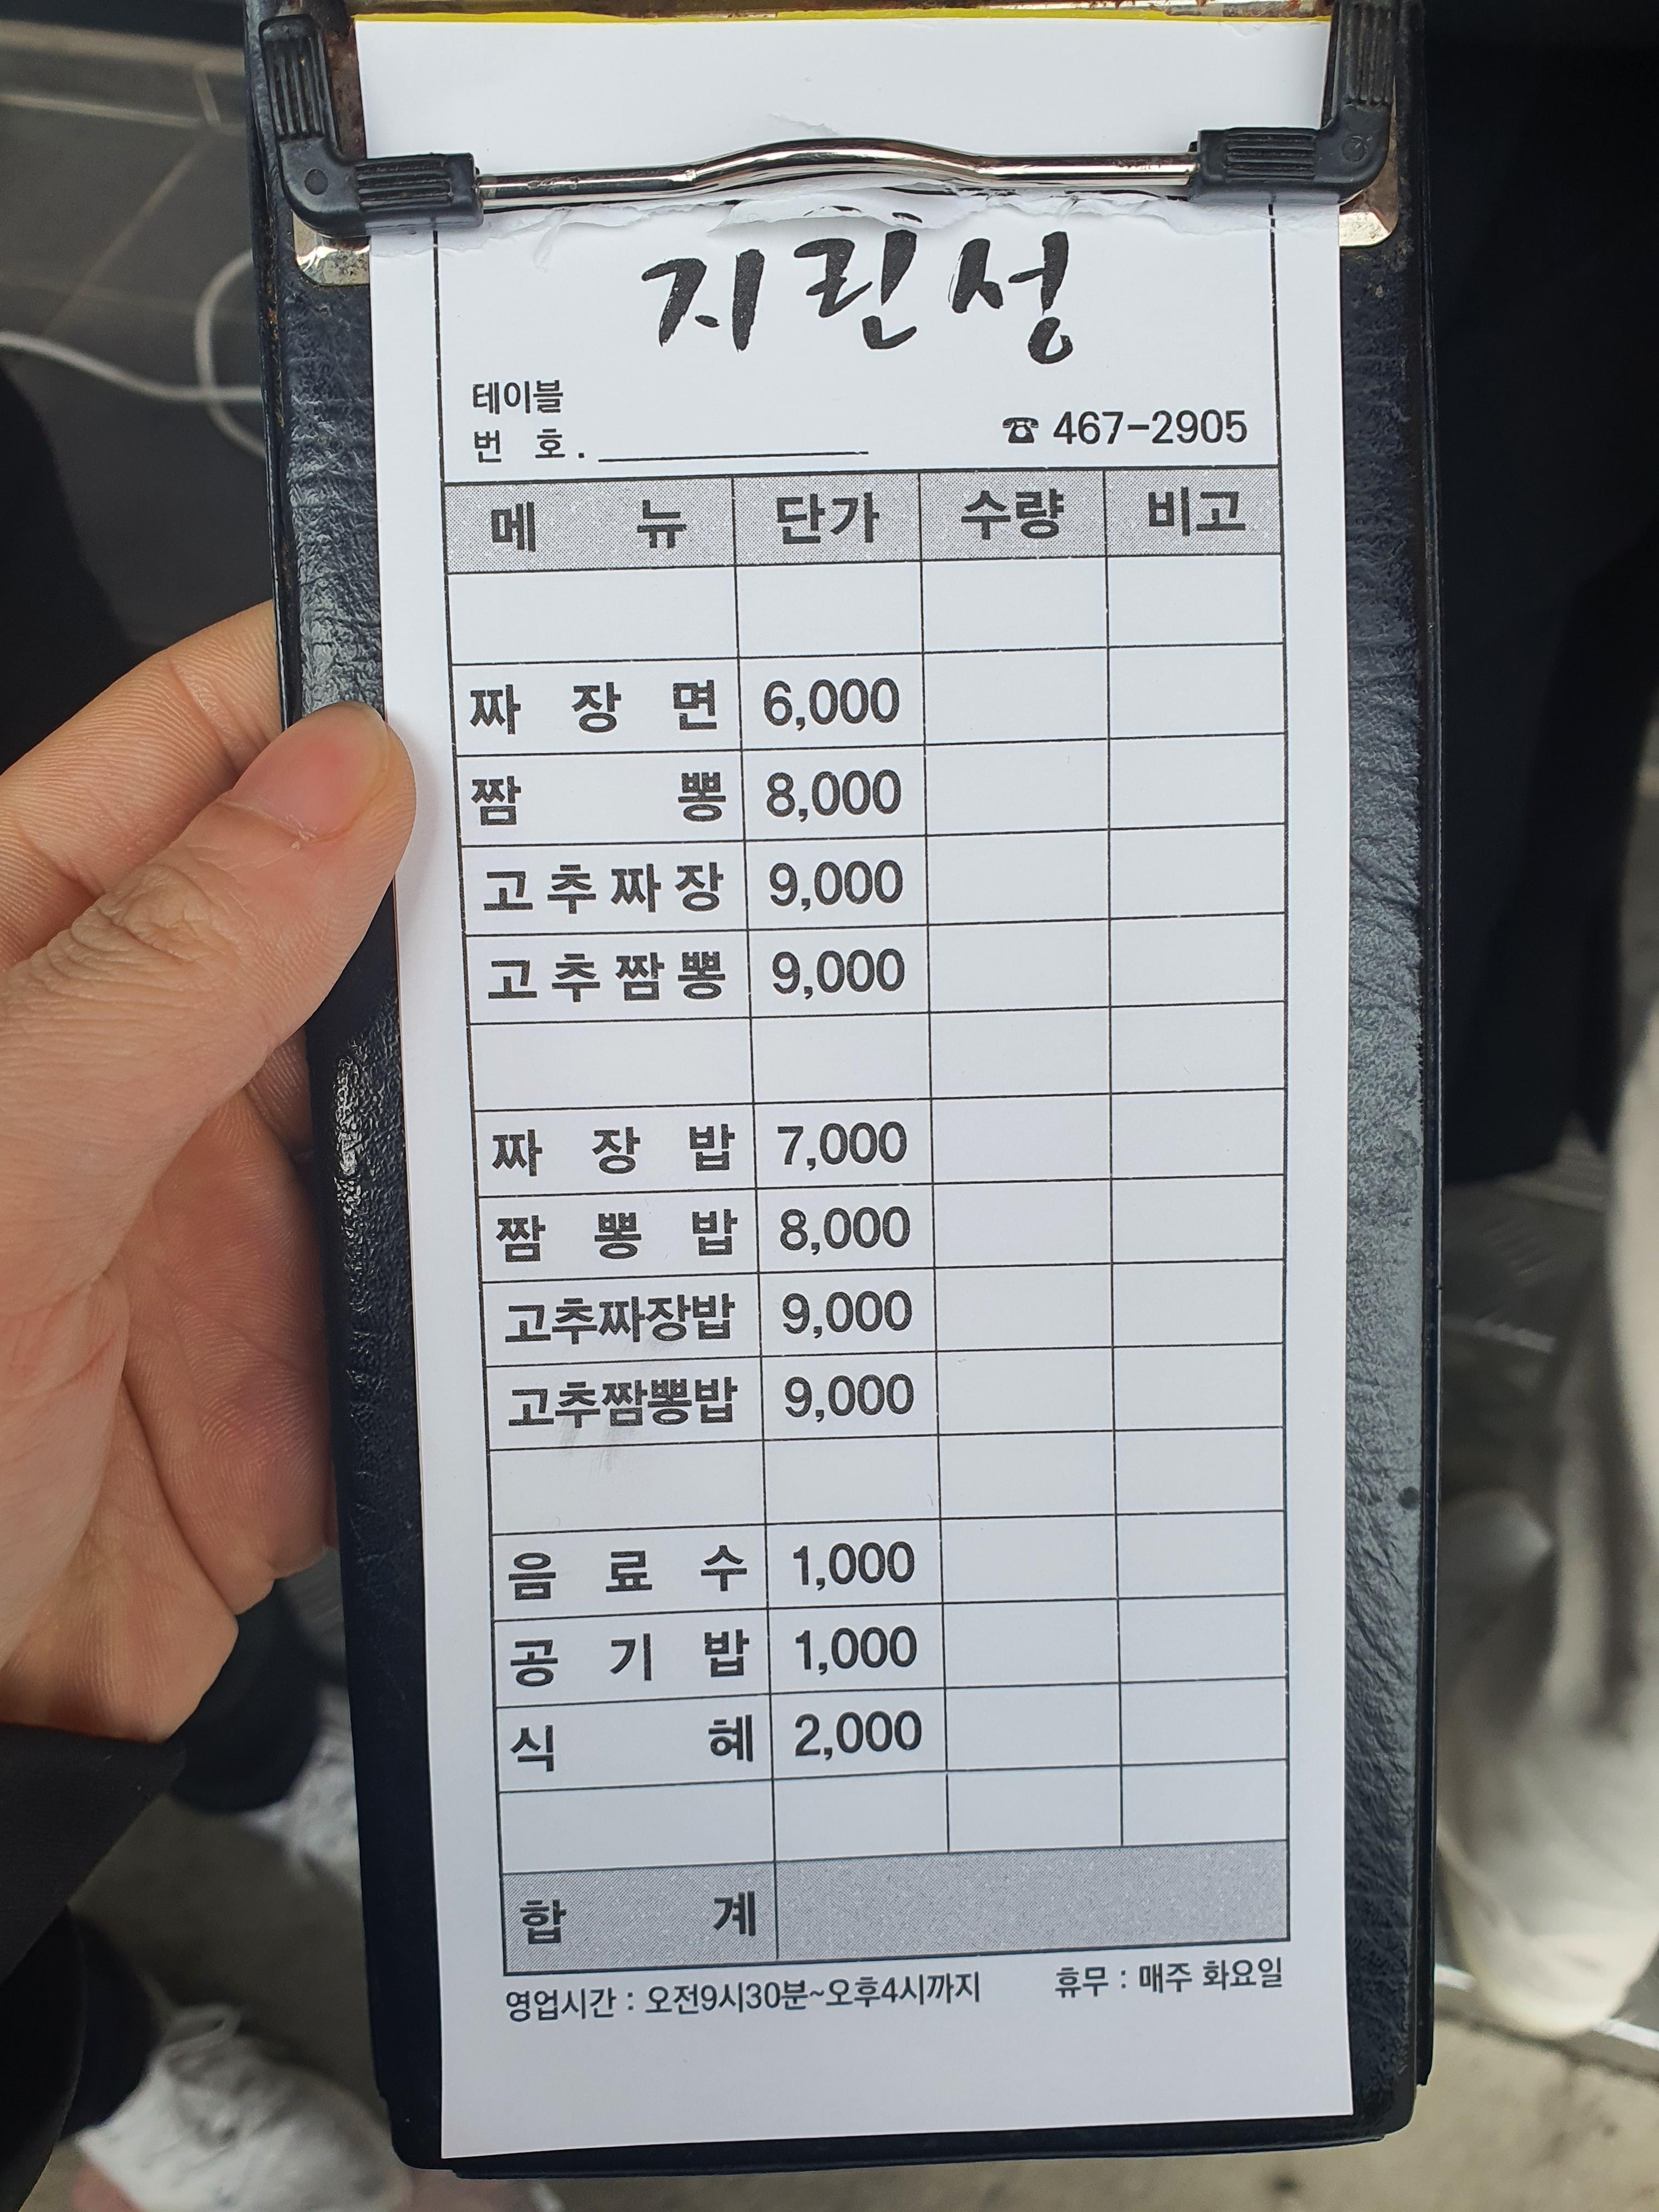 지린성
테이블
번 호. ☎ 467-2905
메 뉴 단가 수량 비고
짜 장 면 6,000
짬 뽕 8,000
고추짜장 9,000
고추짬뽕 9,000
짜 장 밥 7,000
짬 뽕 밥 8,000
고추짜장밥 9,000
고추짬뽕밥 9,000
음 료 수 1,000
공 기 밥 1,000
식 혜 2,000
합 계
영업시간 : 오전9시30분~오후4시까지 휴무 : 매주 화요일